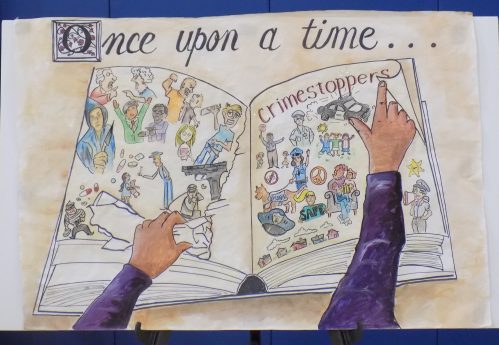 Once upon a time...
crimestoppers
SAFE